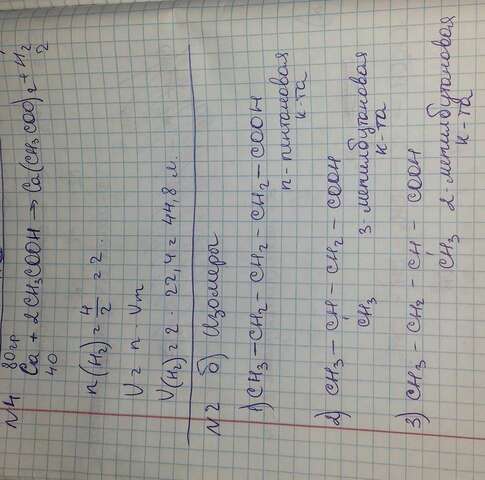 N4
80гр
Ca + 2CH₃COOH → Ca(CH₃COO)₂ + H₂
40 2
n(H₂) = 4/2 = 2.
V = n · Vm
V(H₂) = 2 · 22,4 = 44,8 л.
N2 б) Изомеры
1) CH₃ – CH₂ – CH₂ – CH₂ – COOH
n-пентановая
к-та
2) CH₃ – CH – CH₂ – COOH
CH₃ 3-метилбутановая
к-та
3) CH₃ – CH₂ – CH – COOH
CH₃ 2-метилбутановая
к-та